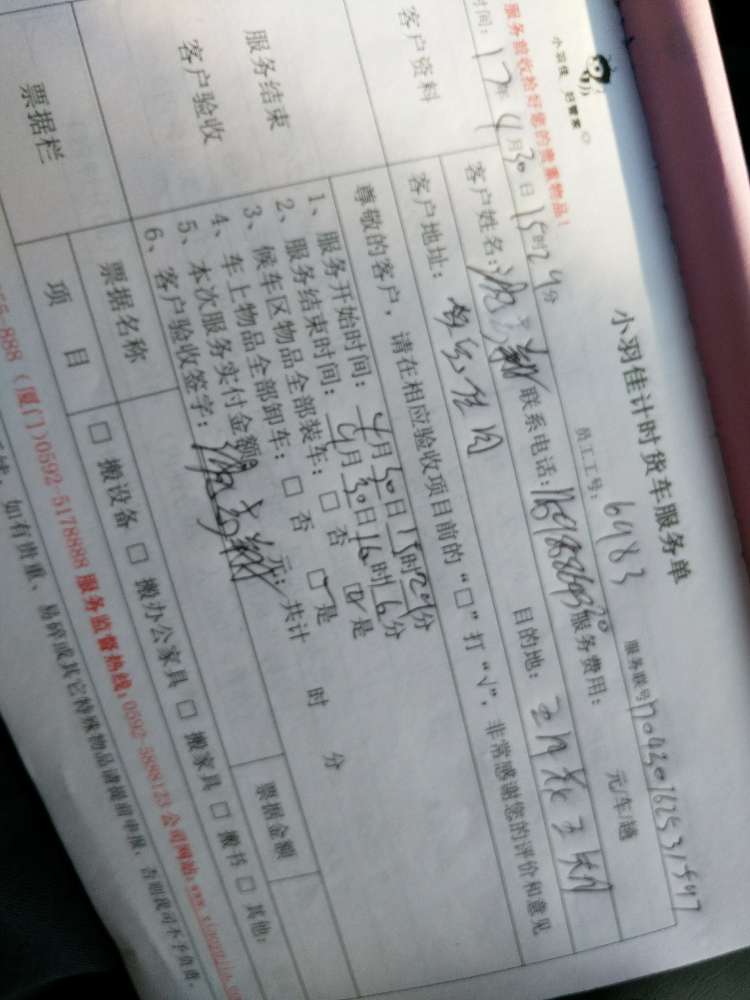 小羽佳 好管家
小羽佳计时货车服务单
服务验收检好您的贵重物品!
员工工号: 6983
服务联号
时间: 17年4月30日15时29分
客户资料
客户姓名:
联系电话:
服务费用: 元/车/趟
客户地址:
目的地:
服务结束
客户验收
尊敬的客户,请在相应验收项目前的“□”打“√”,非常感谢您的评价和意见
1、服务开始时间: 4月30日15时29分
2、服务结束时间: 4月30日16时6分
3、候车区物品全部装车: □ 否 ☑ 是
4、车上物品全部卸车: □ 否 ☑ 是
5、本次服务实付金额 元; 共计 时 分
6、客户验收签字:
票据栏
票据名称
票据金额
项目
□ 搬设备 □ 搬办公家具 □ 搬家具 □ 搬书 □ 其他:
888 (厦门)0592-5178888 服务监督热线:0592-5888123 公司网站:www.
如有贵重、易碎或其它特殊物品请提前申报,否则我司不予负责。